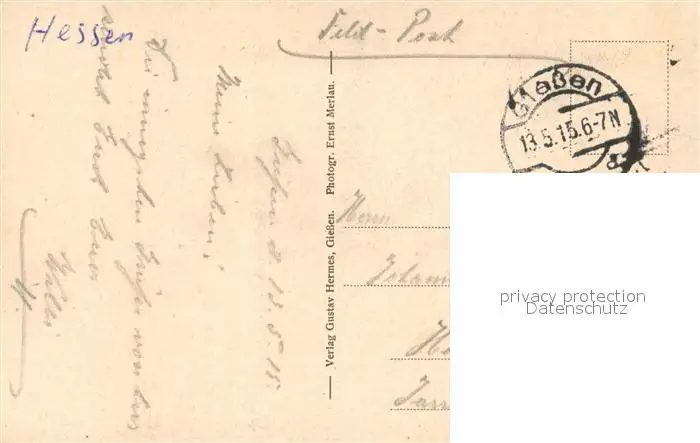 Hessen
Feld-Post
Gießen
13.5.15.6-7N
Verlag Gustav Hermes, Gießen. Photogr. Ernst Merlau.
Gießen d. 13.5.15.
Meine Lieben!
Die innigsten Grüße von hier
sendet Euch Euer
Herrn
privacy protection
Datenschutz